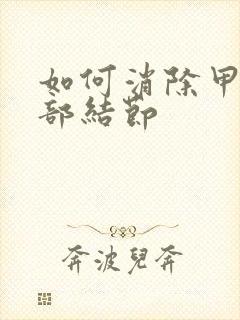 如何消除甲
部結節
奔波兒奔